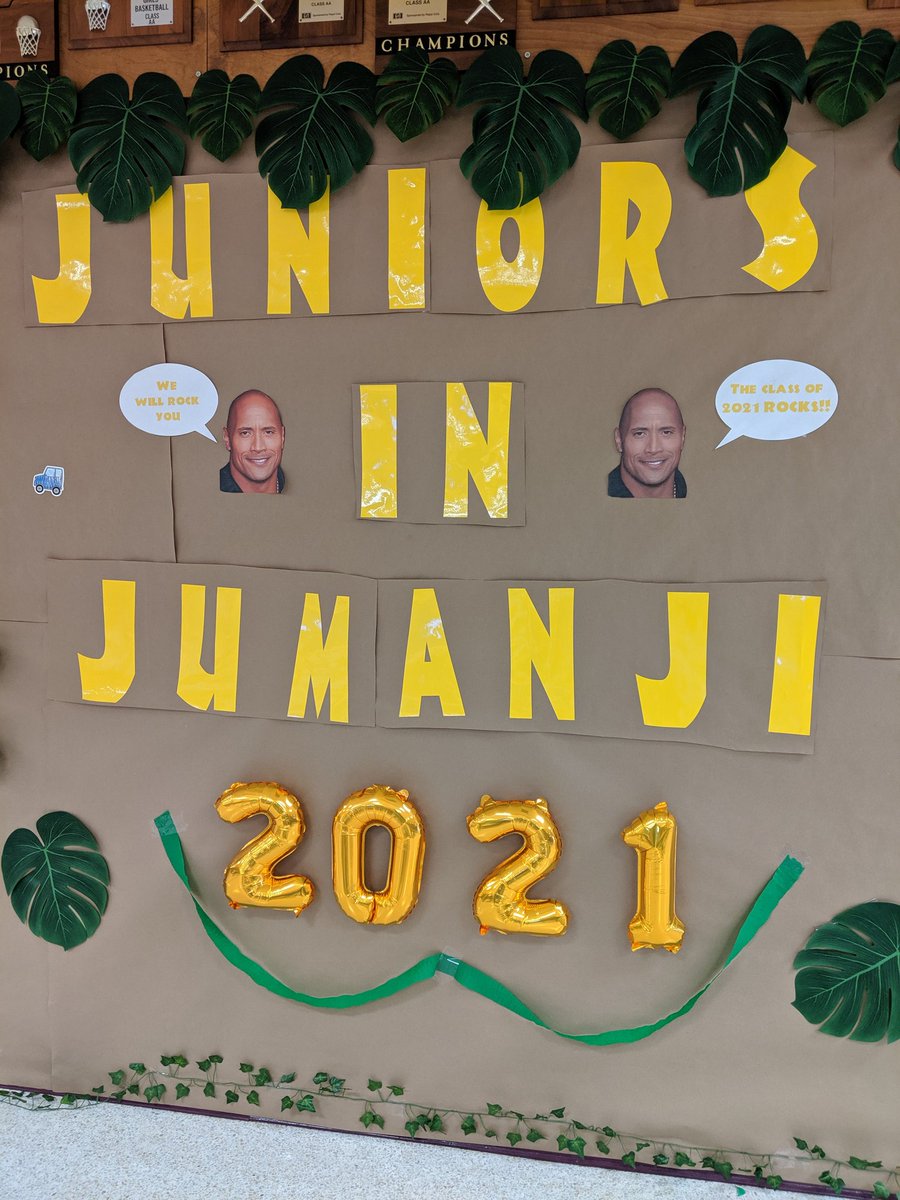 BASKETBALL
CLASS AA
CLASS AA
CHAMPIONS
JUNIORS
WE
WILL ROCK
YOU
THE CLASS OF
2021 ROCKS!!
IN
JUMANJI
2021